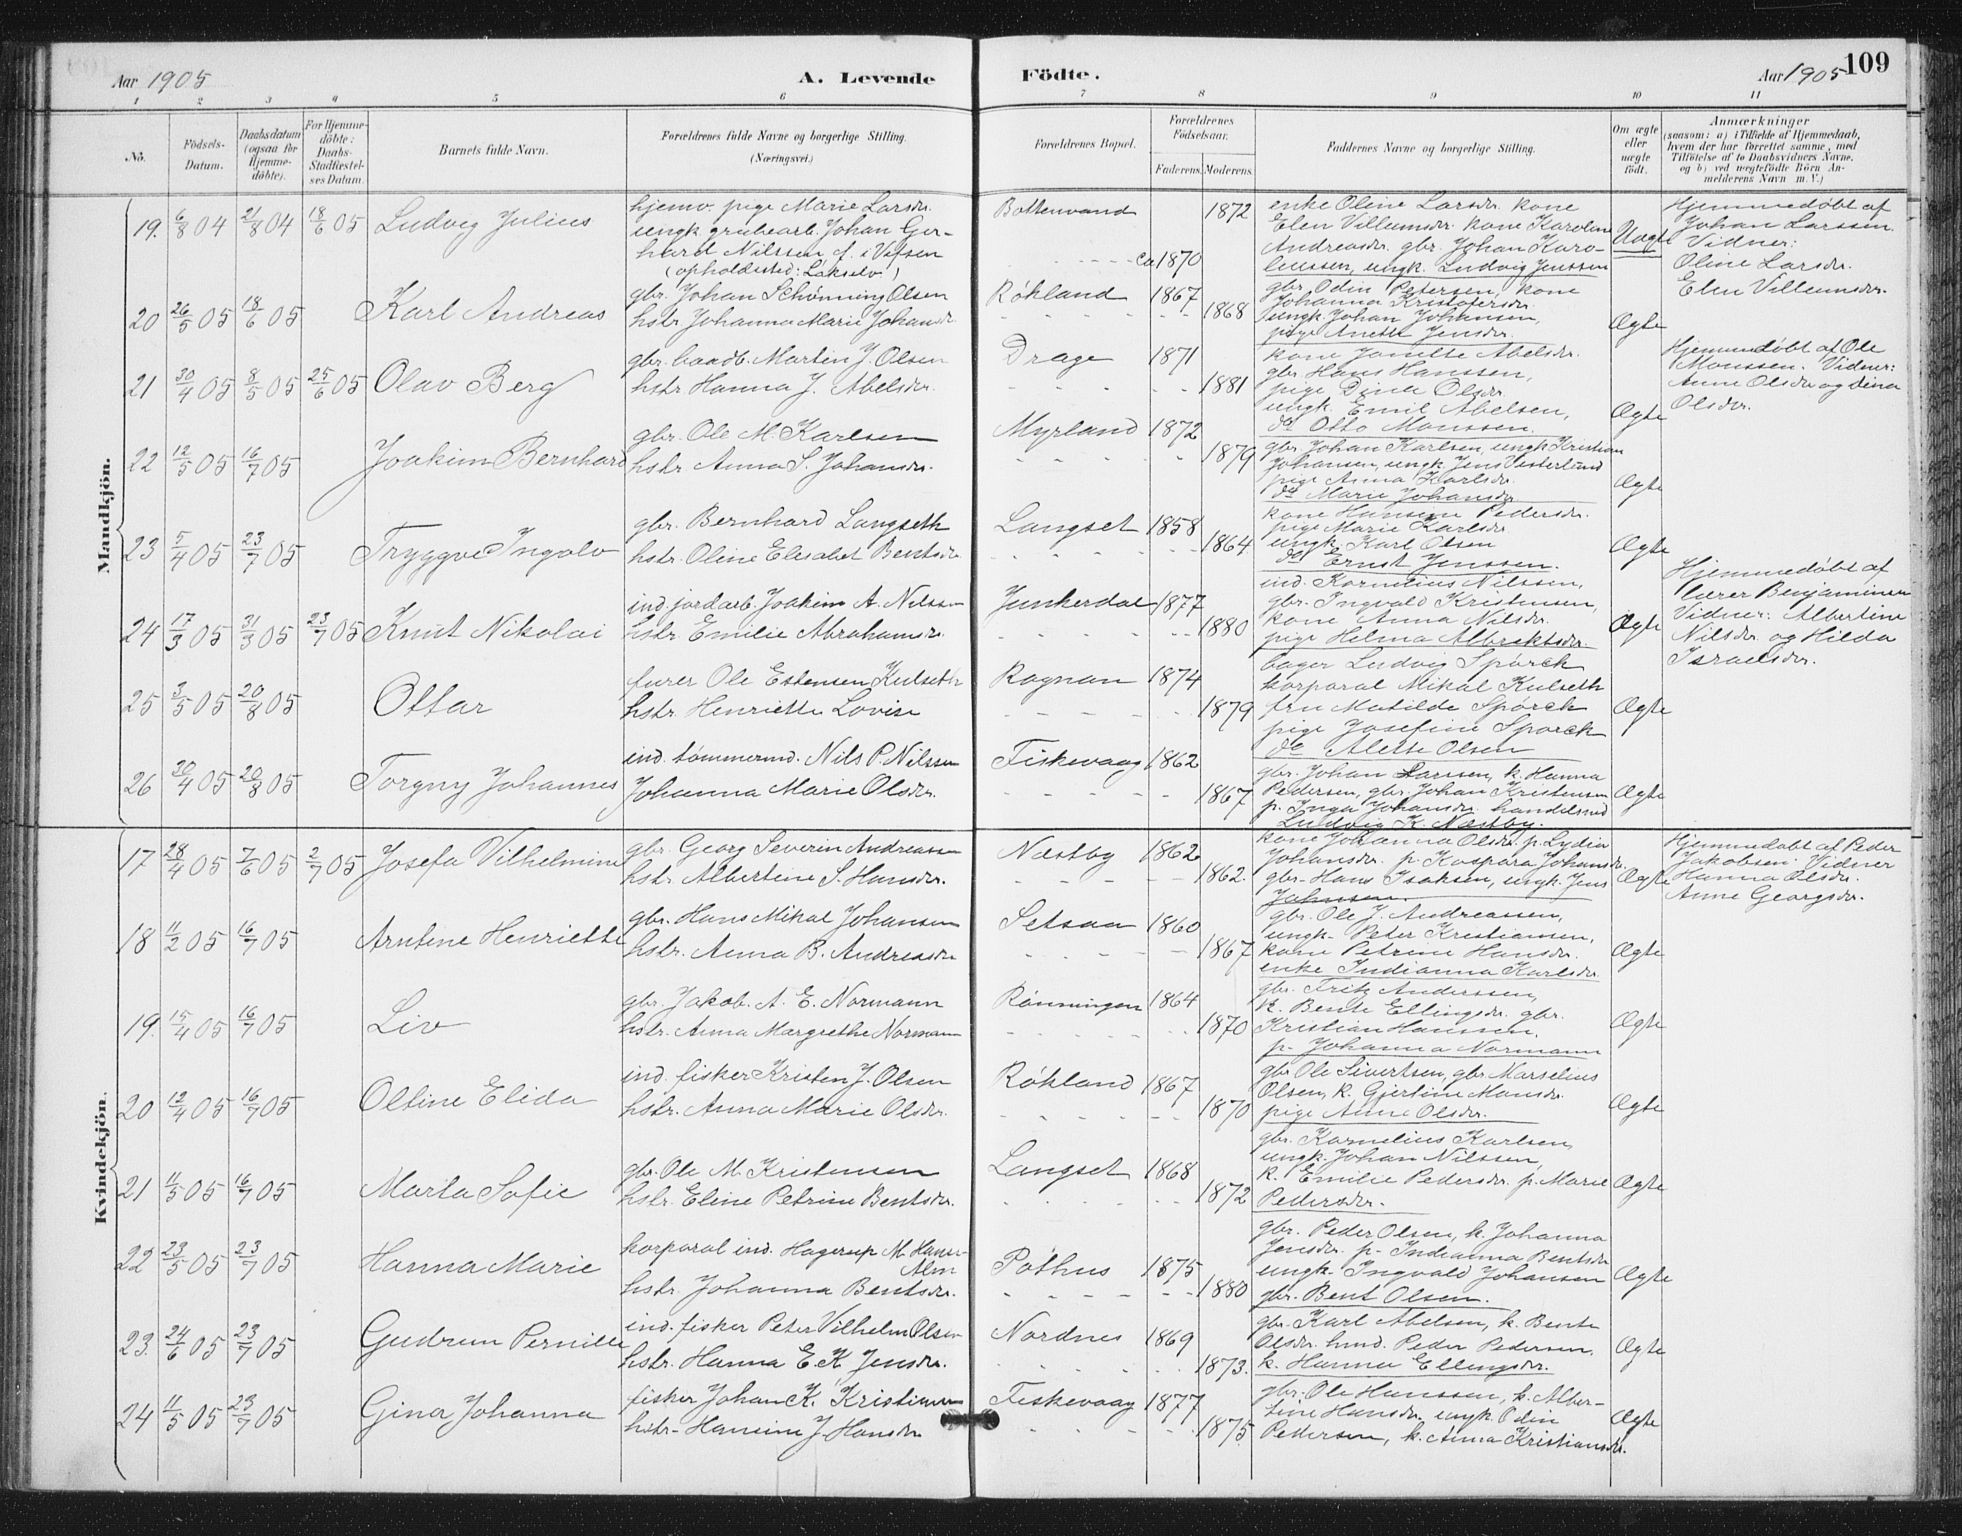 Aar 1905
A. Levende
Födte.
Aar 1905
109
1 2 3 4 5 6 7 8 9 10 11
No.
Födsels-
Datum.
Daabsdatum
(ogsaa for
Hjemme-
döbte).
For Hjemme-
döbte:
Daabs-
Stadfæstel-
ses Datum.
Barnets fulde Navn.
Forældrenes fulde Navne og borgerlige Stilling.
(Næringsvei.)
Forældrenes Bopæl.
Forældrenes
Födselsaar.
Faderens. Moderens.
Faddernes Navne og borgerlige Stilling.
Om ægte
eller
uægte
födt.
Anmærkninger
(saasom: a) i Tilfælde af Hjemmedaab,
hvem der har forrettet samme, med
Tilföielse af to Daabsvidners Navne,
og b) ved uægtefödte Börn An-
melderens Navn m. V.)
Mandkjön.
19. 6/8 04 21/8 04 18/6 05 Ludvig Julius
hjemv. pige Marie Larsdr.
ungk. grubearb. Johan Ger-
hard Nilssen f. i Vefsen
(opholdssted: Lakselv)
Bottenvand 1872
ca 1870
enke Oline Larsdr. kone
Elen Villumsdr. kone Karoline
Andreasdr. gbr. Johan Karo-
liussen, ungk. Ludvig Jenssen
Uægte
Hjemmedøbt af
Johan Larssen.
Vidner:
Oline Larsdr.
Elen Villumsdr.
20 26/5 05 18/6 05 Karl Andreas
gbr. Johan Schønning Olsen
hstr. Johanna Marie Johansdr.
Røkland 1867
1868
gbr. Odin Petersen, kone
Johanna Kristofersdr.
ungk. Johan Johansen,
pige Anette Jensdr.
Ægte
21 30/4 05 8/5 05 25/6 05 Olav Berg
gbr. baadb. Martin J. Olsen
hstr. Hanna J. Abelsdr.
Drage 1871
1881
kone Janette Abelsdr.
gbr. Hans Hanssen,
pige Dina Olsdr.
ungk. Emil Abelsen,
do Otto Monssen.
Ægte
Hjemmedøbt af Ole
Monssen. Vidner:
Anne Olsdr og Dina
Olsdr.
22 12/5 05 16/7 05 Joakim Bernhard
gbr. Ole M. Karlsen
hstr. Anna S. Johansdr.
Myrland 1872
1879
gbr. Johan Karlsen, ungk. Kristian
Johansen, ungk. Jens Vesterlund
pige Anna Karlsdr.
do Marie Johansdr
Ægte
23 5/4 05 23/7 05 Tryggve Ingolv
gbr. Bernhard Langseth
hstr. Oline Elisabet Bentsdr
Langset 1858
1864
kone Hansine Pedersdr.
pige Marie Karlsdr
ungk. Karl Olsen
do Ernst Jenssen.
Ægte
24 17/3 05 31/3 05 23/7 05 Knut Nikolai
ind. jordarb. Joakim A. Nilssen
hstr. Emilie Abrahamsdr.
Junkerdal 1877
1880
ind. Kornelius Nilssen,
gbr. Ingvald Kristensen,
kone Anna Nilsdr.
pige Helma Albrektsdr.
Ægte
Hjemmedøbt af
lærer Benjaminsen
Vidner: Albertine
Nilsdr og Hilda
Israelsdr.
25 3/5 05 20/8 05 Ottar
furer Ole Estensen Kulseth
hstr. Henriette Lovise
Rognan 1874
1879
bager Ludvig Spørck
korporal Mikal Kulseth
fru Matilde Spørck
pige Josefine Spørck
do Alette Olsen
Ægte
26 30/4 05 20/8 05 Torgny Johannes
ind. tømmermd. Nils P. Nilssen
Johanna Marie Olsdr.
Fiskevaag 1862
1867
gbr. Johan Larssen, k. Hanna
Pedersen, gbr. Johan Kristensen
p. Inga Johansdr. handelsmd
Ludvig K. Næstby.
Ægte
Kvindekjön.
17 28/4 05 7/6 05 2/7 05 Josefa Vilhelmine
gbr. Georg Severin Andreassen
hstr. Albertine S. Hansdr.
Næstby 1862
1862.
kone Johanna Olsdr. p. Lydia
Johansdr. p. Kaspara Johansdr.
gbr. Hans Isaksen, ungk. Jens
Johnsen.
Ægte
Hjemmedøbt af Peder
Jakobsen. Vidner
Hanna Olsdr.
Anne Georgsdr.
18 11/2 05 16/7 05 Arntine Henriette
gbr. Hans Mikal Johansen
hstr. Anna B. Andreasdr
Setsaa 1860
1867
gbr. Ole J. Andreassen,
ungk. Peter Kristiansen,
kone Petrine Hansdr.
enke Indianna Karlsdr.
Ægte
19. 15/4 05 16/7 05 Liv
gbr. Jakob A. E. Normann
hstr. Anna Margrethe Normann
Rønningen 1864
1870
gbr. Fritz Anderssen,
k. Bente Ellingsdr. gbr.
Kristian Hanssen,
p. Johanna Normann
Ægte
20 12/4 05 16/7 05 Oltine Elida
ind. fisker Kristen J. Olsen
hstr. Anna Marie Olsdr.
Røkland 1867
1870
gbr Ole Sivertsen, gbr. Marselius
Olsen, k. Gjertine Hansdr.
pige Anne Olsdr.
Ægte
21 11/5 05 16/7 05 Marta Sofie
gbr. Ole M. Kristensen
hstr. Eline Petrine Bentsdr.
Langset 1868
1872
gbr. Kornelius Karlsen,
ungk. Johan Nilssen,
k. Emilie Pedersdr. p. Marie
Pedersdr.
Ægte
22 23/5 05 23/7 05 Hanna Marie
korporal ind. Hagerup M. Hans-
Alm
hstr. Johanna Bentsdr.
Pothus 1875
1880
gbr. Peder Olsen, k. Johanna
Jensdr. p. Indianna Bentsdr
ungk. Ingvald Johansen
gbr. Bent Olsen.
Ægte
23. 24/6 05 23/7 05 Gudrun Pernille
ind. fisker Peter Vilhelm Olsen
hstr. Hanna E. K. Jensdr.
Nordnes 1869
1873.
gbr. Karl Abelsen, k. Bente
Olsdr. hmd. Peder Pedersen,
k. Hanna Ellingsdr.
Ægte
24 11/5 05 23/7 05 Gina Johanna
fisker Johan K. Kristiansen
hstr. Hansine J. Hansdr
Fiskevaag 1877
1875.
gbr. Ole Hanssen, k. Alber-
tine Hansdr. ungk. Odin
Pedersen, k. Anna Kristiansdr.
Ægte